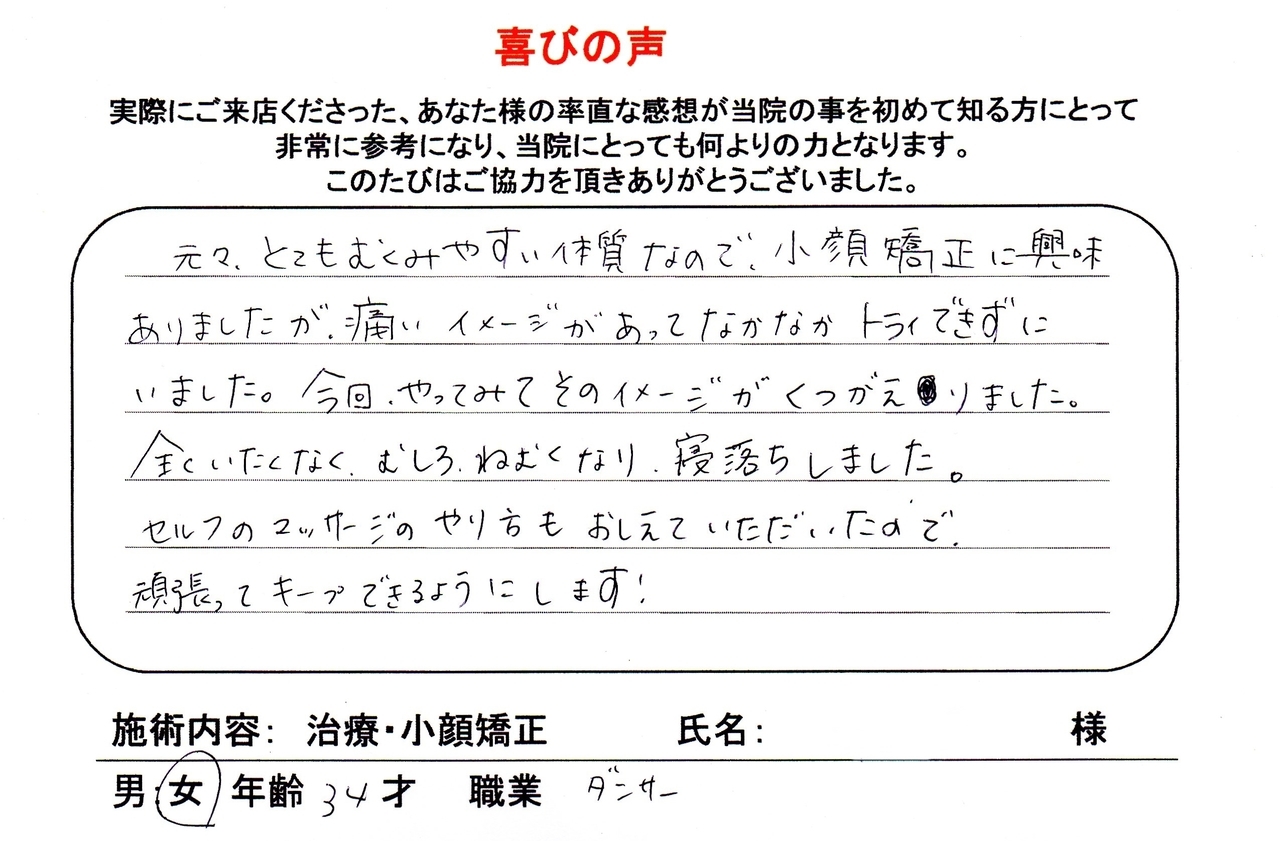 喜びの声
実際にご来店くださった、あなた様の率直な感想が当院の事を初めて知る方にとって
非常に参考になり、当院にとっても何よりの力となります。
このたびはご協力を頂きありがとうございました。
元々、とてもむくみやすい体質なので、小顔矯正に興味
ありましたが、痛い イメージがあってなかなか トライできずに
いました。今回、やってみてそのイメージがくつがえりました。
全くいたくなく、むしろ、ねむくなり、寝落ちしました。
セルフのマッサージのやり方もおしえていただいたので、
頑張ってキープできるようにします!
施術内容: 治療・小顔矯正 氏名: 様
男:女 年齢 34才 職業 ダンサー